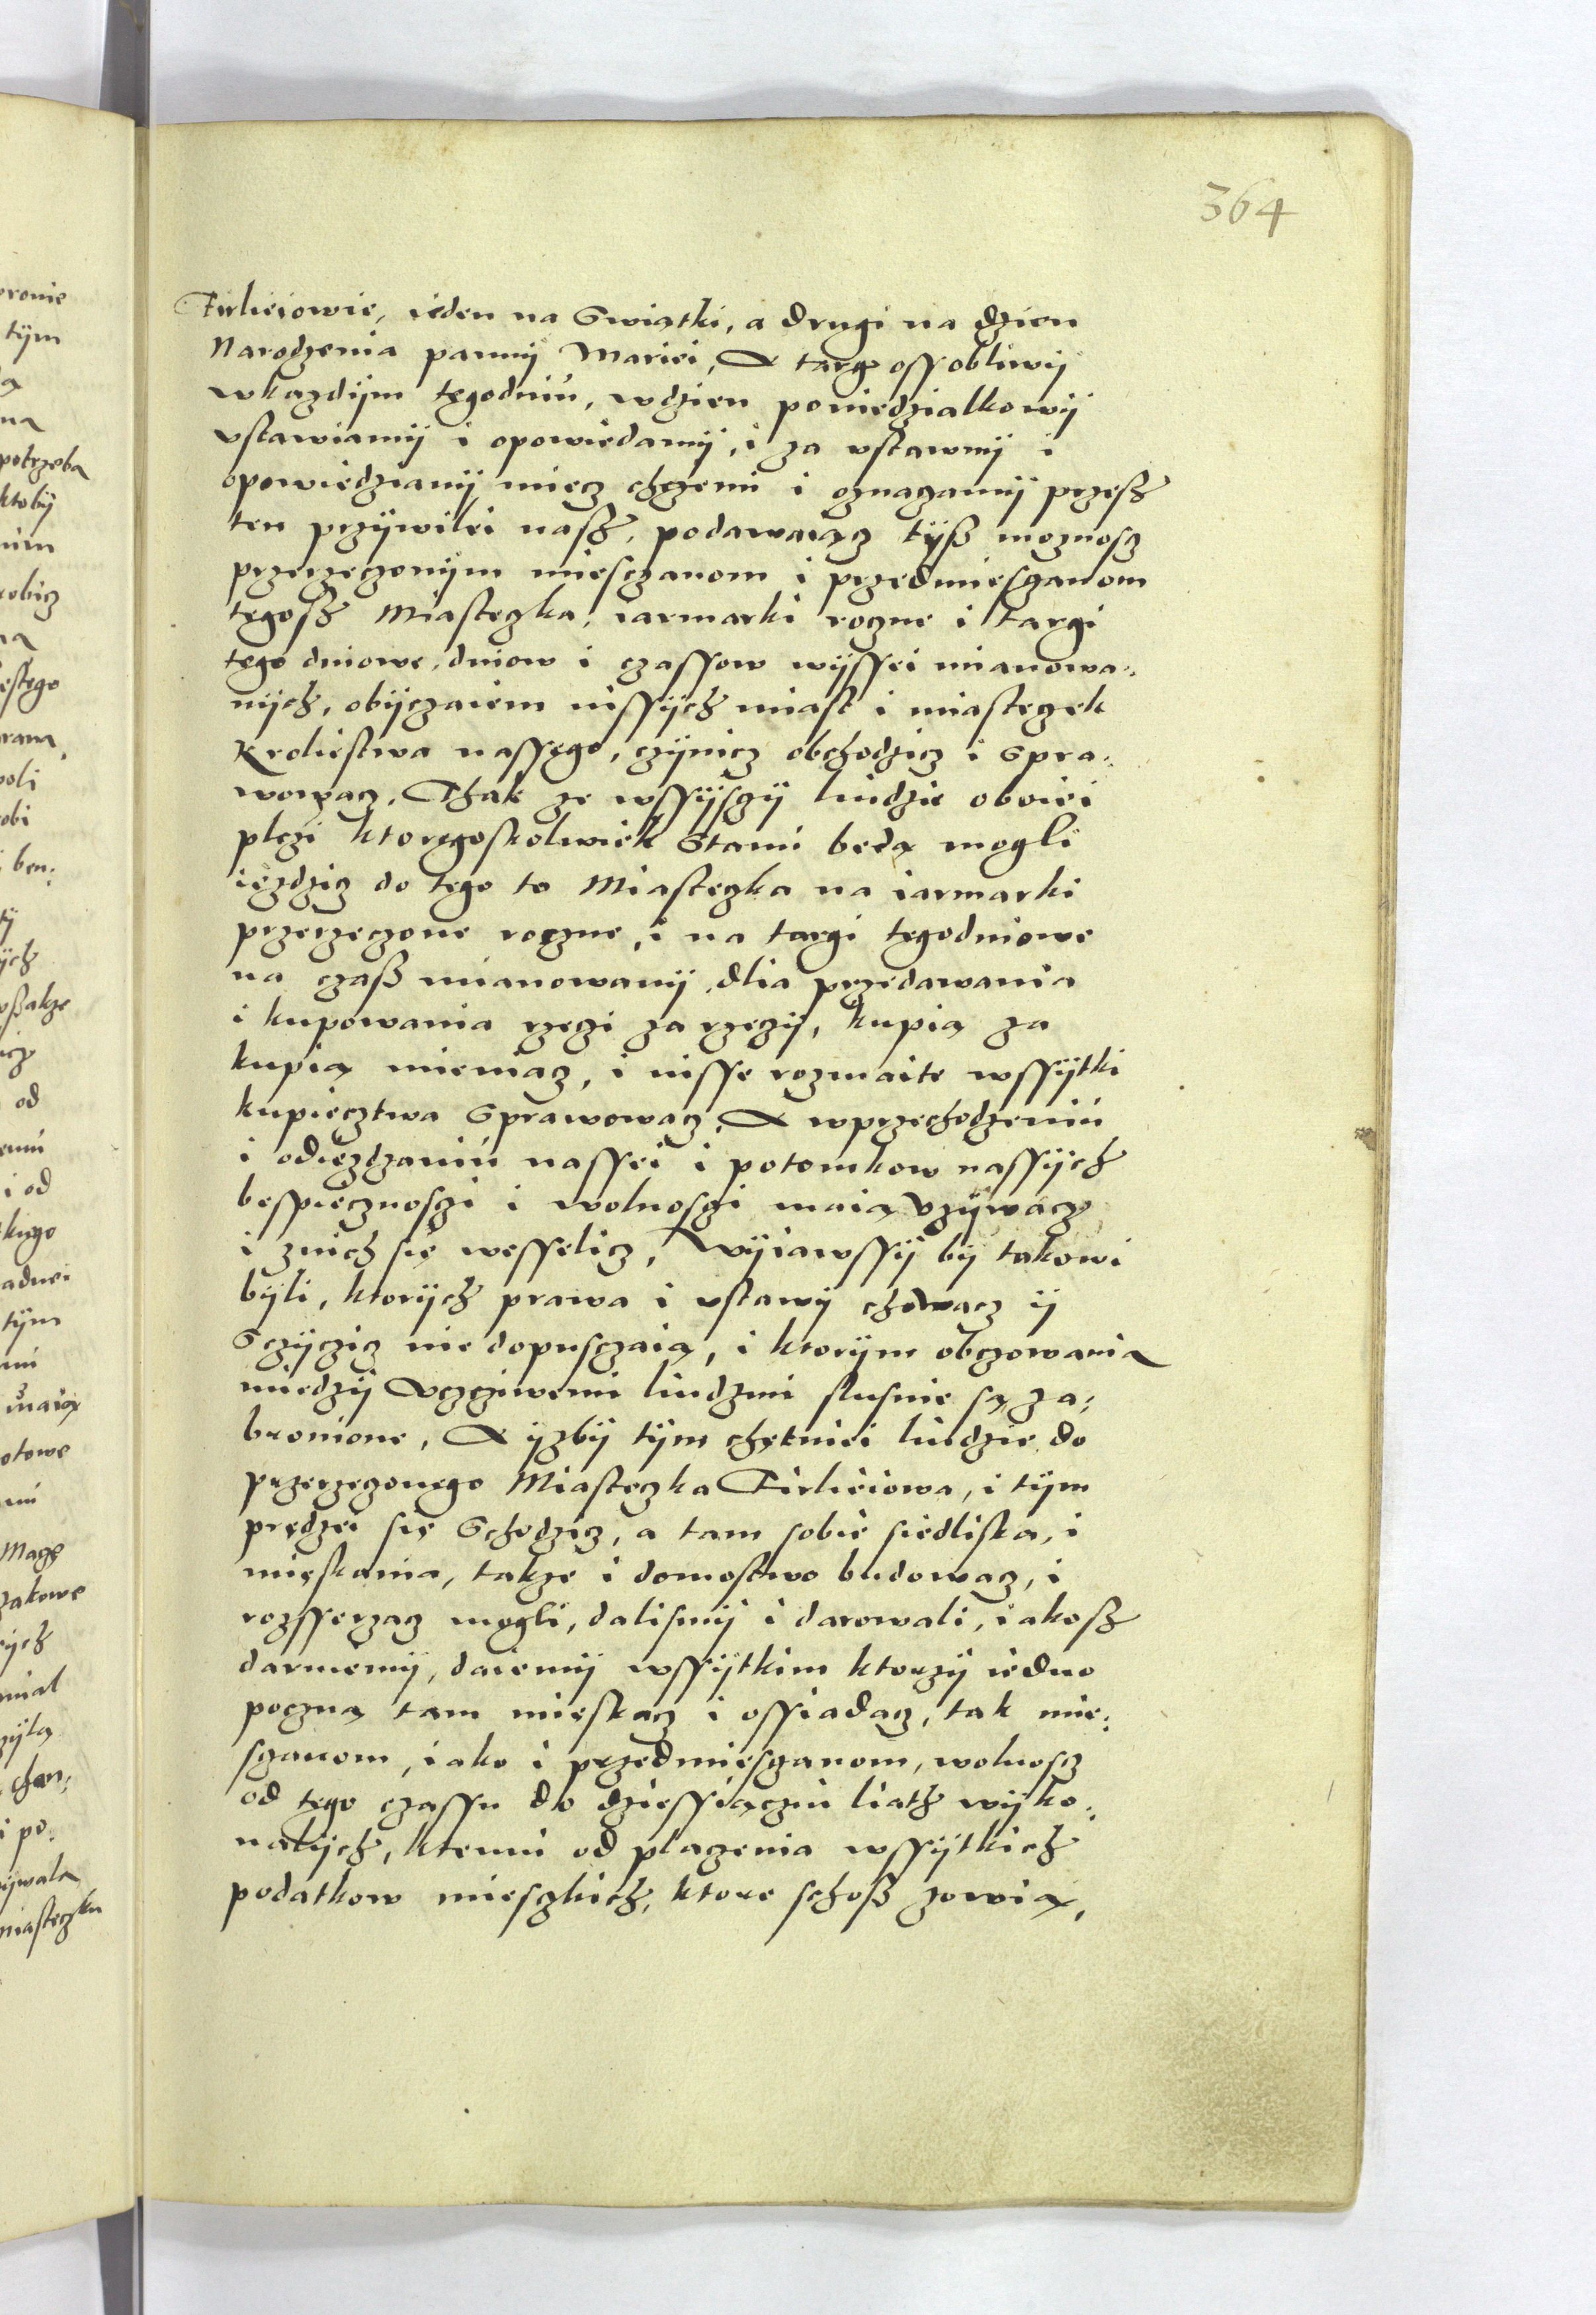 364
Firlieiowie, ieden na Swiątki, a drugi na dzien
Narodzenia panny Mariei, A targ ossobliwij
wkazdijm tegodniu, wdzien poniedzialkowij
vstawiamij i opowiedamij, i za vstawnij i
opowiedzianij miecz chczemi i oznazamij przesz
ten przijwilei nasz, podawaiącz tijsz moznoscz
przerzeczonijm miesczanom i przedmiesczanom
tegosz Miasteczka, iarmarki roczne i targi
tego dniowe, dniow i czassow wijssei mianowa-
nijch, obijczaiem inssijch miast i miasteczek
Kroliestwa nassego, czijnicz obchodzicz i spra-
wowacz. Thak ze wssijsczij liudzie oboiei
plczi ktoregoskolwiek stanu będą mogli
iezdzicz do tego to Miasteczka na iarmarki
przerzeczone roczne, i na targi tegodniowe
na czasz mianowanij, dlia przedawania
i kupowania rzeczi za rzeczij, kupią za
kupią mieniacz, i insse rozmaite wssijtki
kupiecztwa sprawowacz, A wprzechodzeniu
i odiezdzaniu nassei i potomkow nassijch
bespiecznosczi i wolnosczi maią vzijwacz
i znich się wesselicz, Wijiawssij bij takowi
bijli, ktorijch prawa i vstawij chowacz ij
sczijczicz nie dopusczaią, i ktorijm obczowania
miedzij vczciwemi liudzmi slusnie są za-
bronione, A ijzbij tijm chętniei liudzie do
przerzeczonego Miasteczka Firlieiowa, i tijm
prędzei się schodzicz, a tam sobie siedliska, i
mieskania, takze i domostwo budowacz, i
rozsserzacz mogli, dalismij i darowali, iakosz
daruiemij, daiemij wssijtkim ktorzij iedno
poczną tam mieskacz i ossiadacz, tak mie-
sczanom, iako i przedmiesczanom, wolnoscz
od tego czassu do dziessiącziu liath wijko-
nalijch, ktemu od placzenia wssijtkich
podatkow miesczkich, ktore schosz zowią,